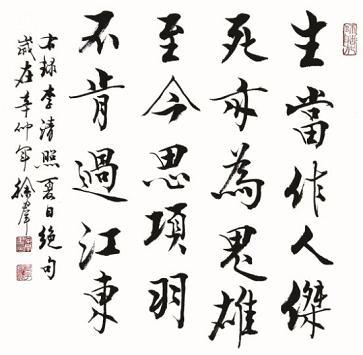 生當作人傑
死亦為鬼雄
至今思項羽
不肯過江東
右録李清照夏日絶句
歲在辛